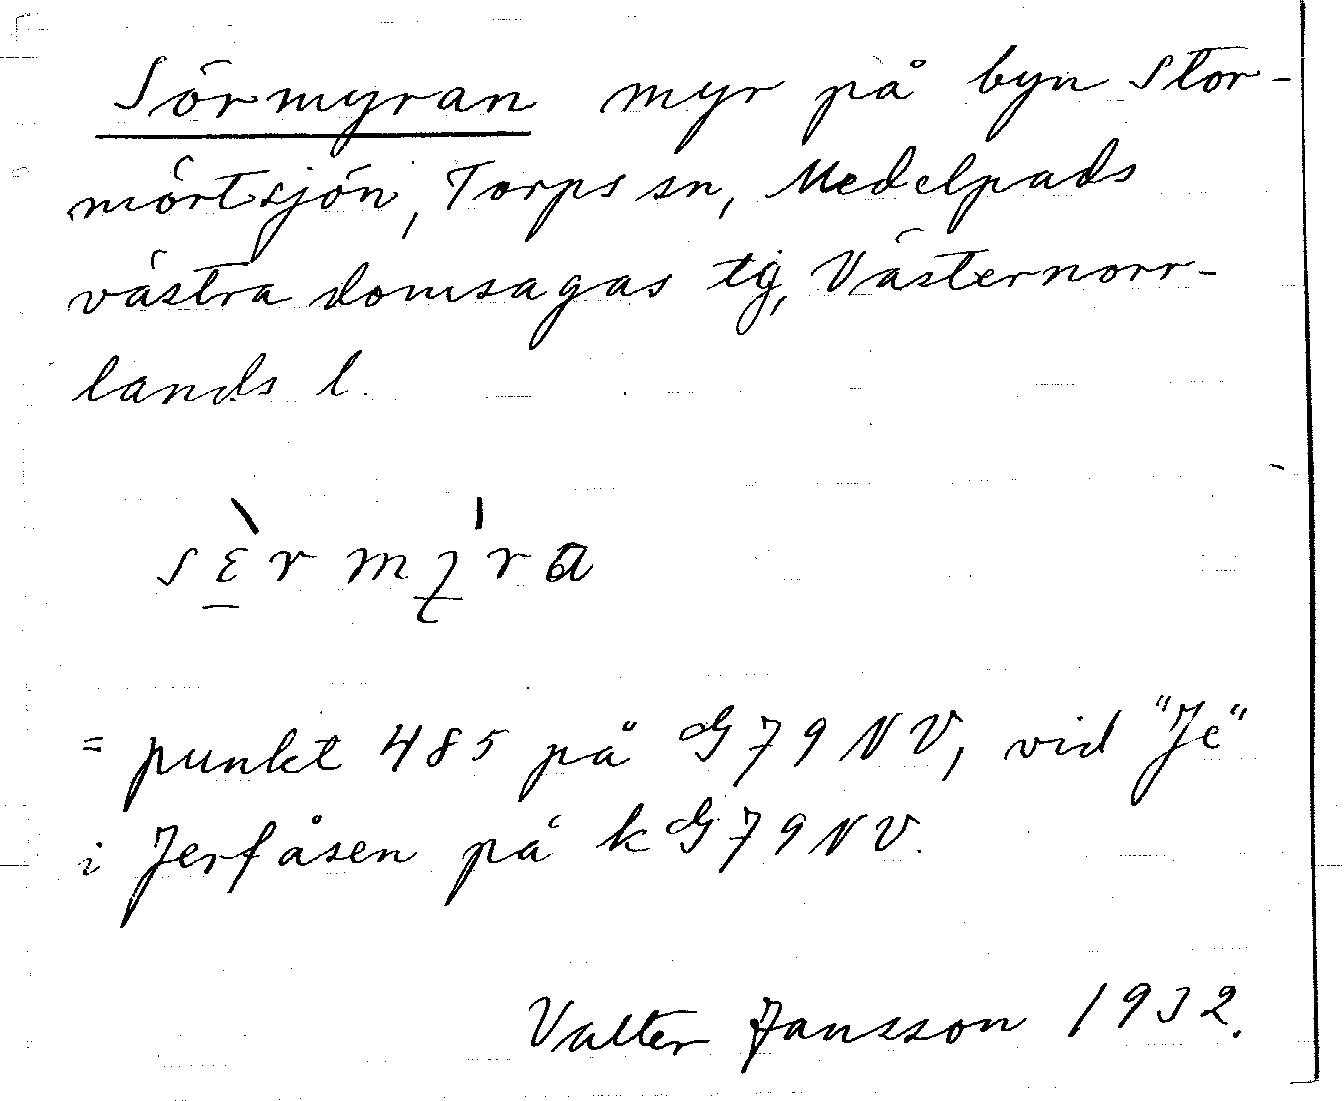 Sörmyran myr på byn Stor-
mörtsjön, Torps sn, Medelpads
västra domsagas tg, Västernorr-
lands l.
= punkt 485 på G79NV, vid "Je"
i Jerfåsen på kG79NV.
Valter Jansson 1932.